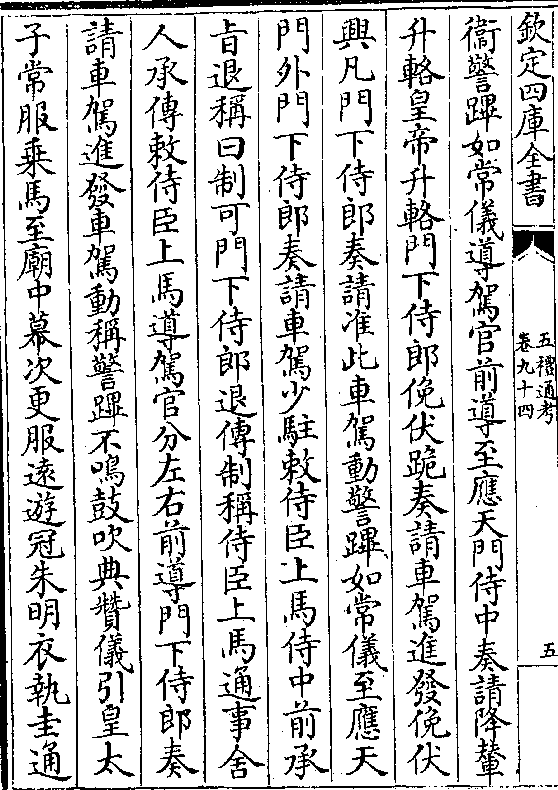 欽定四庫全書
五禮通考
卷九十四
五
衞警蹕如常儀導駕官前導至應天門侍中奏請降輦
升輅皇帝升輅門下侍郎俛伏跪奏請車駕進發俛伏
興凡門下侍郎奏請准此車駕動警蹕如常儀至應天
門外門下侍郎奏請車駕少駐敕侍臣上馬侍中前承
旨退稱曰制可門下侍郎退傳制稱侍臣上馬通事舍
人承傳敕侍臣上馬導駕官分左右前導門下侍郎奏
請車駕進發車駕動稱警蹕不鳴鼓吹典贊儀引皇太
子常服乘馬至廟中幕次更服逺遊冠朱明衣執圭通